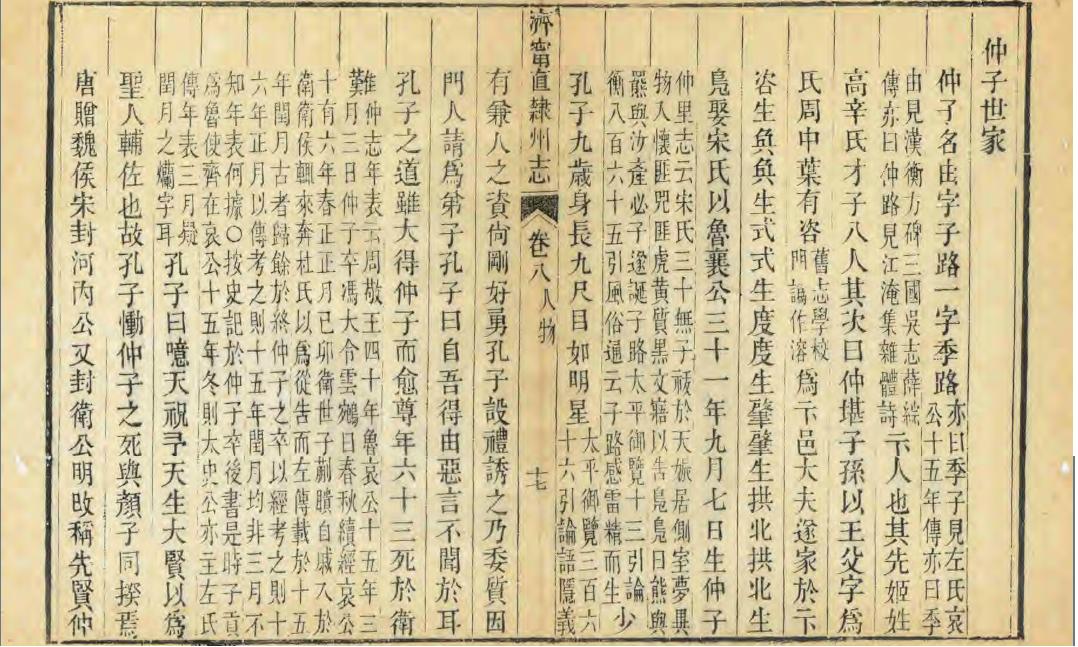 仲子世家
仲子名由字子路一字季路亦曰季子見左氏哀公十五年傳亦曰季
由見漢衡方碑三國吳志薛綜傳亦曰仲路見江淹集雜體詩卞人也其先姬姓
高辛氏才子八人其次曰仲堪子孫以王父字爲
氏周中葉有咨舊志學校門譌作溶爲卞邑大夫遂家於卞
咨生奐奐生式式生度度生肇肇生拱北拱北生
鳧娶宋氏以魯襄公三十一年九月七日生仲子
仲里志云宋氏三十無子祓於天嫄居側室夢異物入懷匪兕匪虎黃質黑文寤以告鳧鳧曰熊與
羆與汐產必子遂誕子路太平御覽十三引論衡八百六十五引風俗通云子路感雷精而生少
孔子九歲身長九尺目如明星太平御覽三百六十六引論語隱義
濟甯直隸州志 卷八人物 十七
有兼人之資尙剛好勇孔子設禮誘之乃委質因
門人請爲弟子孔子曰自吾得由惡言不聞於耳
孔子之道雖大得仲子而愈尊年六十三死於衛
難仲志年表云周敬王四十年魯哀公十五年三月三日仲子卒馮大令雲鵷曰春秋續經哀公
十有六年春王正月己卯衛世子蒯聵自戚入於衛衛侯輒來奔杜氏以爲從告而左傳載於十五
年閏月古者歸餘於終仲子之卒以經考之則十六年正月以傳考之則十五年閏月均非三月不
知年表何據○按史記於仲子卒後書是時子貢爲魯使齊在哀公十五年冬則太史公亦主左氏
傳年表三月疑閏月之爛字耳孔子曰噫天祝予天生大賢以爲
聖人輔佐也故孔子慟仲子之死與顏子同揆焉
唐贈魏侯宋封河內公又封衛公明改稱先賢仲